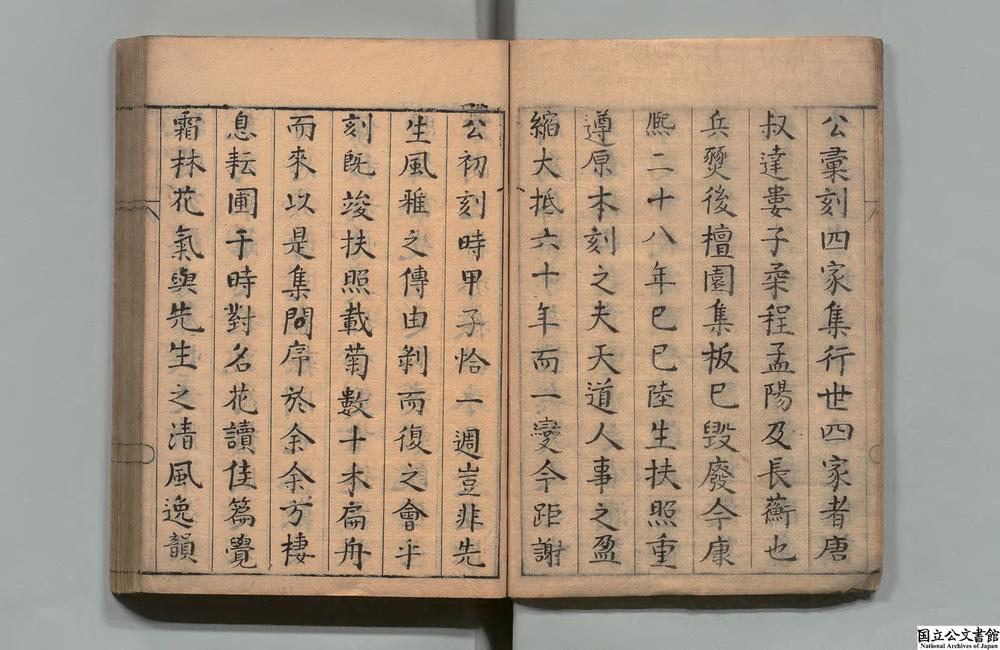 公彙刻四家集行世四家者唐
叔達婁子柔程孟陽及長蘅也
兵燹後檀園集板已毀廢今康
熙二十八年己巳陸生扶照重
遵原本刻之夫天道人事之盈
縮大抵六十年而一變今距謝
公初刻時甲子恰一週豈非先
生風雅之傳由剝而復之會乎
刻既竣扶照載菊數十本扁舟
而來以是集問序於余余方棲
息耘圃于時對名花讀佳篇覺
霜林花氣與先生之清風逸韻
国立公文書館
National Archives of Japan